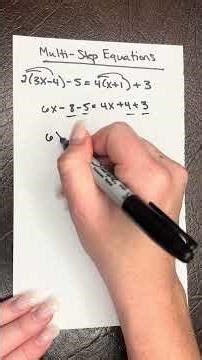 Multi-Step Equations
2(3x-4)-5=4(x+1)+3
6x-8-5=4x+4+3
6